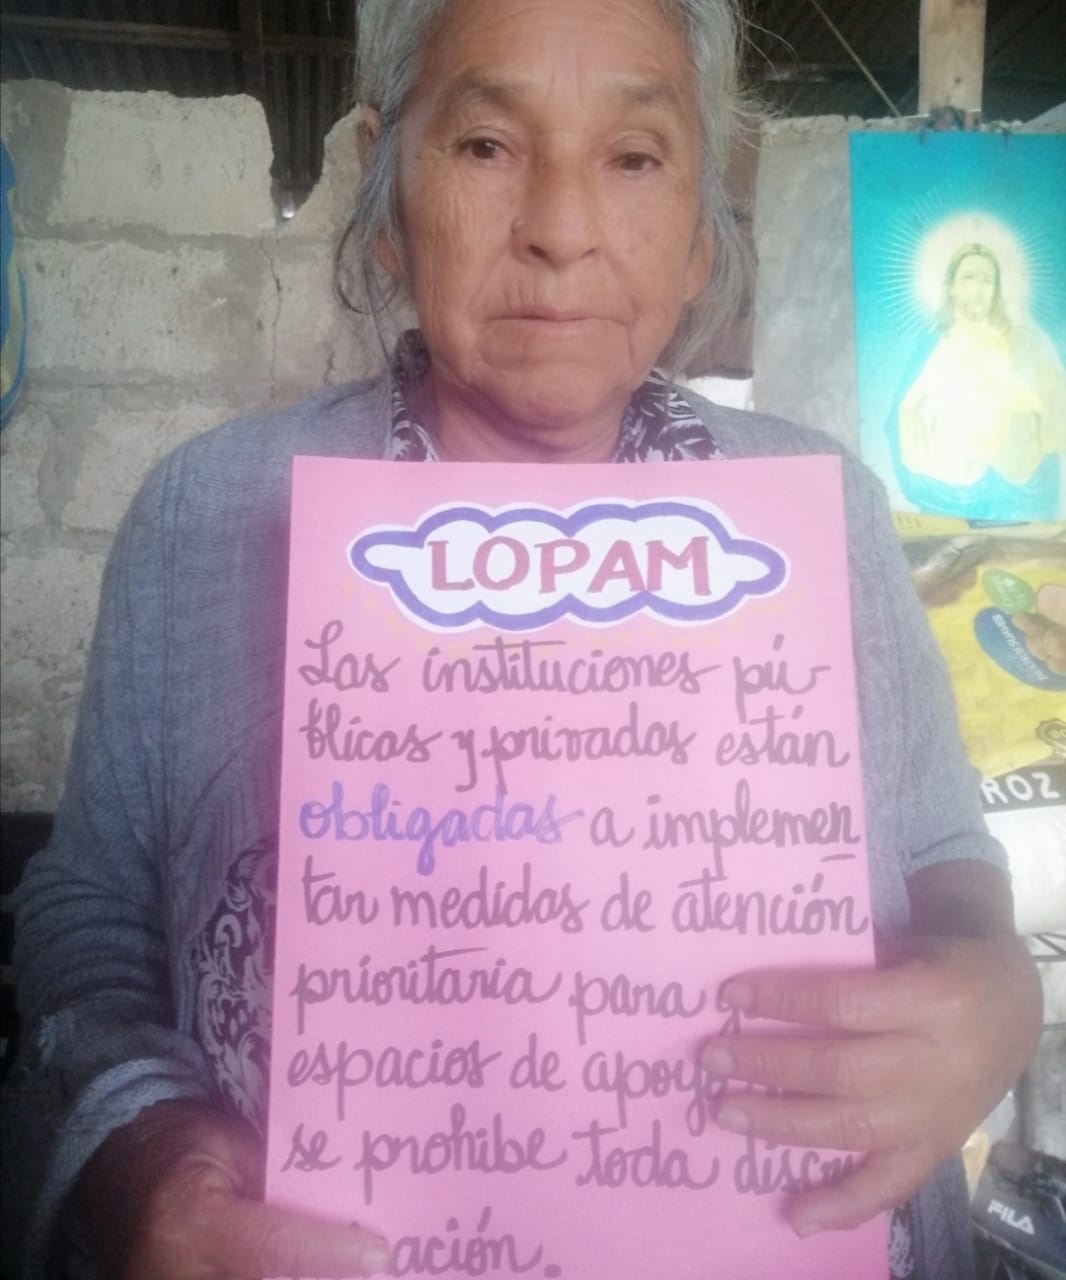 LOPAM
Las instituciones pú-
blicas y privadas están
obligadas a implemen
tar medidas de atención
prioritaria para
espacios de apoyo
se prohibe toda
ROZ
FILA